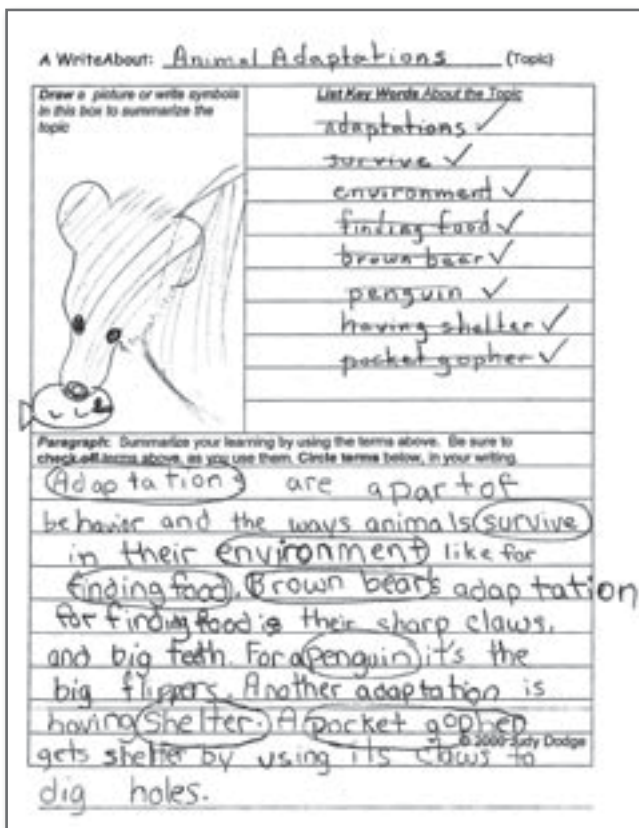 A WriteAbout: Animal Adaptations (Topic)
Draw a picture or write symbols
in this box to summarize the
topic
List Key Words About the Topic
adaptations ✓
survive ✓
environment ✓
finding food ✓
brown bear ✓
penguin ✓
having shelter ✓
pocket gopher ✓
Paragraph: Summarize your learning by using the terms above. Be sure to
check off terms above, as you use them. Circle terms below, in your writing.
Adaptations are a part of
behavior and the ways animals survive
in their environment like for
finding food. Brown bears adaptation
for finding food is their sharp claws,
and big teeth. For a penguin it's the
big flippers. Another adaptation is
having shelter. A pocket gopher
© 2000 Judy Dodge
gets shelter by using its claws to
dig holes.